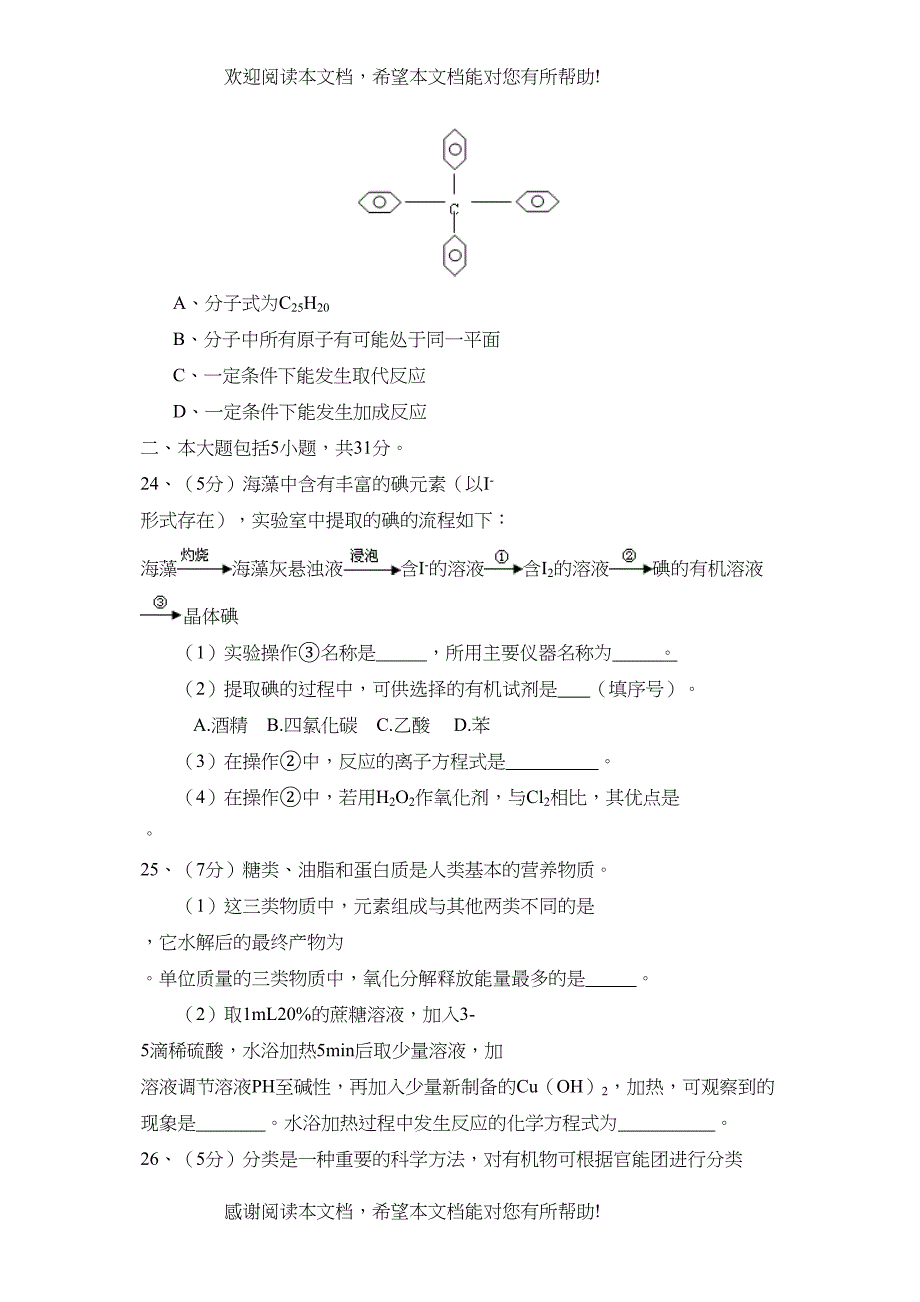 欢迎阅读本文档，希望本文档能对您有所帮助!
C
A、分子式为C25H20
B、分子中所有原子有可能处于同一平面
C、一定条件下能发生取代反应
D、一定条件下能发生加成反应
二、本大题包括5小题，共31分。
24、（5分）海藻中含有丰富的碘元素（以I-
形式存在），实验室中提取的碘的流程如下：
海藻 灼烧 海藻灰悬浊液 浸泡 含I-的溶液 ① 含I2的溶液 ② 碘的有机溶液
③ 晶体碘
（1）实验操作③名称是______，所用主要仪器名称为______。
（2）提取碘的过程中，可供选择的有机试剂是____（填序号）。
A.酒精 B.四氯化碳 C.乙酸 D.苯
（3）在操作②中，反应的离子方程式是___________。
（4）在操作②中，若用H2O2作氧化剂，与Cl2相比，其优点是
。
25、（7分）糖类、油脂和蛋白质是人类基本的营养物质。
（1）这三类物质中，元素组成与其他两类不同的是
，它水解后的最终产物为
。单位质量的三类物质中，氧化分解释放能量最多的是______。
（2）取1mL20%的蔗糖溶液，加入3-
5滴稀硫酸，水浴加热5min后取少量溶液，加
溶液调节溶液PH至碱性，再加入少量新制备的Cu（OH）2，加热，可观察到的
现象是________。水浴加热过程中发生反应的化学方程式为___________。
26、（5分）分类是一种重要的科学方法，对有机物可根据官能团进行分类
感谢阅读本文档，希望本文档能对您有所帮助!